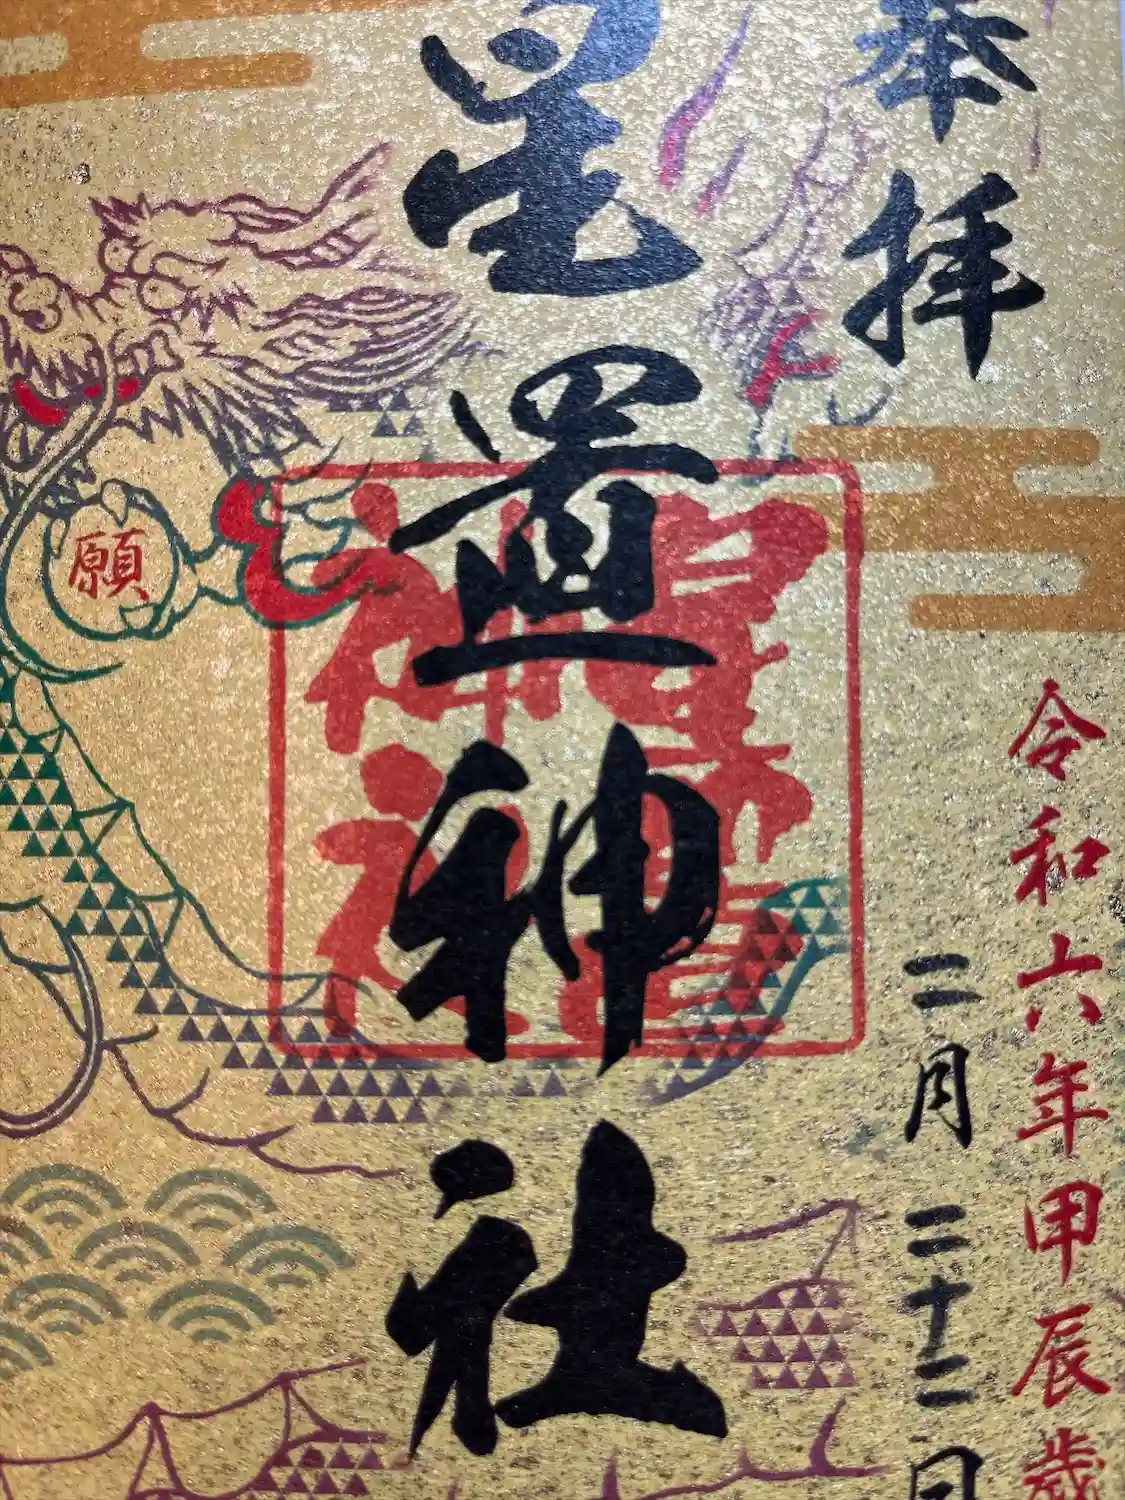 奉拝
令和六年甲辰歳
二月二十二日
星置神社
願